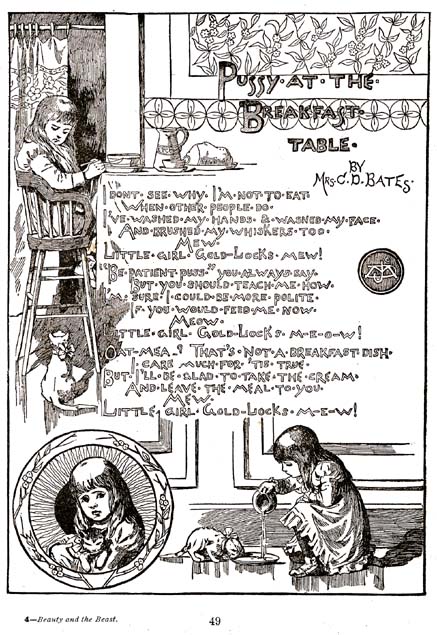 PUSSY·AT·THE·
BREAKFAST·
TABLE·
BY
MRS·C·D·BATES·
"I DON'T·SEE·WHY·I'M·NOT·TO·EAT·
WHEN·OTHER·PEOPLE·DO·
I'VE·WASHED·MY·HANDS·&·WASHED·MY·FACE·
AND·BRUSHED·MY·WHISKERS·TOO·
MEW·
LITTLE·GIRL·GOLD-LOCKS·MEW!
"BE·PATIENT·PUSS"·YOU·ALWAYS·SAY·
BUT·YOU·SHOULD·TEACH·ME·HOW·
I'M·SURE·I·COULD·BE·MORE·POLITE·
IF·YOU·WOULD·FEED·ME·NOW·
MEOW·
LITTLE·GIRL·GOLD-LOCKS·M-E-O-W!
OAT-MEAL? THAT'S·NOT·A·BREAKFAST·DISH·
I·CARE·MUCH·FOR·'TIS·TRUE·
BUT·I'LL·BE·GLAD·TO·TAKE·THE·CREAM·
AND·LEAVE·THE·MEAL·TO·YOU·
MEW·
LITTLE·GIRL·GOLD-LOCKS·M-E-W!
4—Beauty and the Beast.
49